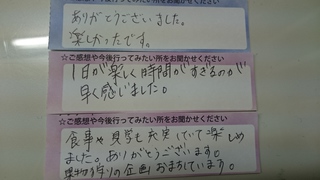 ありがとうございました。
楽しかったです。
☆ご感想や今後行ってみたい所をお聞かせください
1日が楽しく時間がすぎるのが
早く感じました。
☆ご感想や今後行ってみたい所をお聞かせください
食事や見学も充実していて楽しめ
ました。ありがとうございます。
果物狩りの企画お待ちしています。